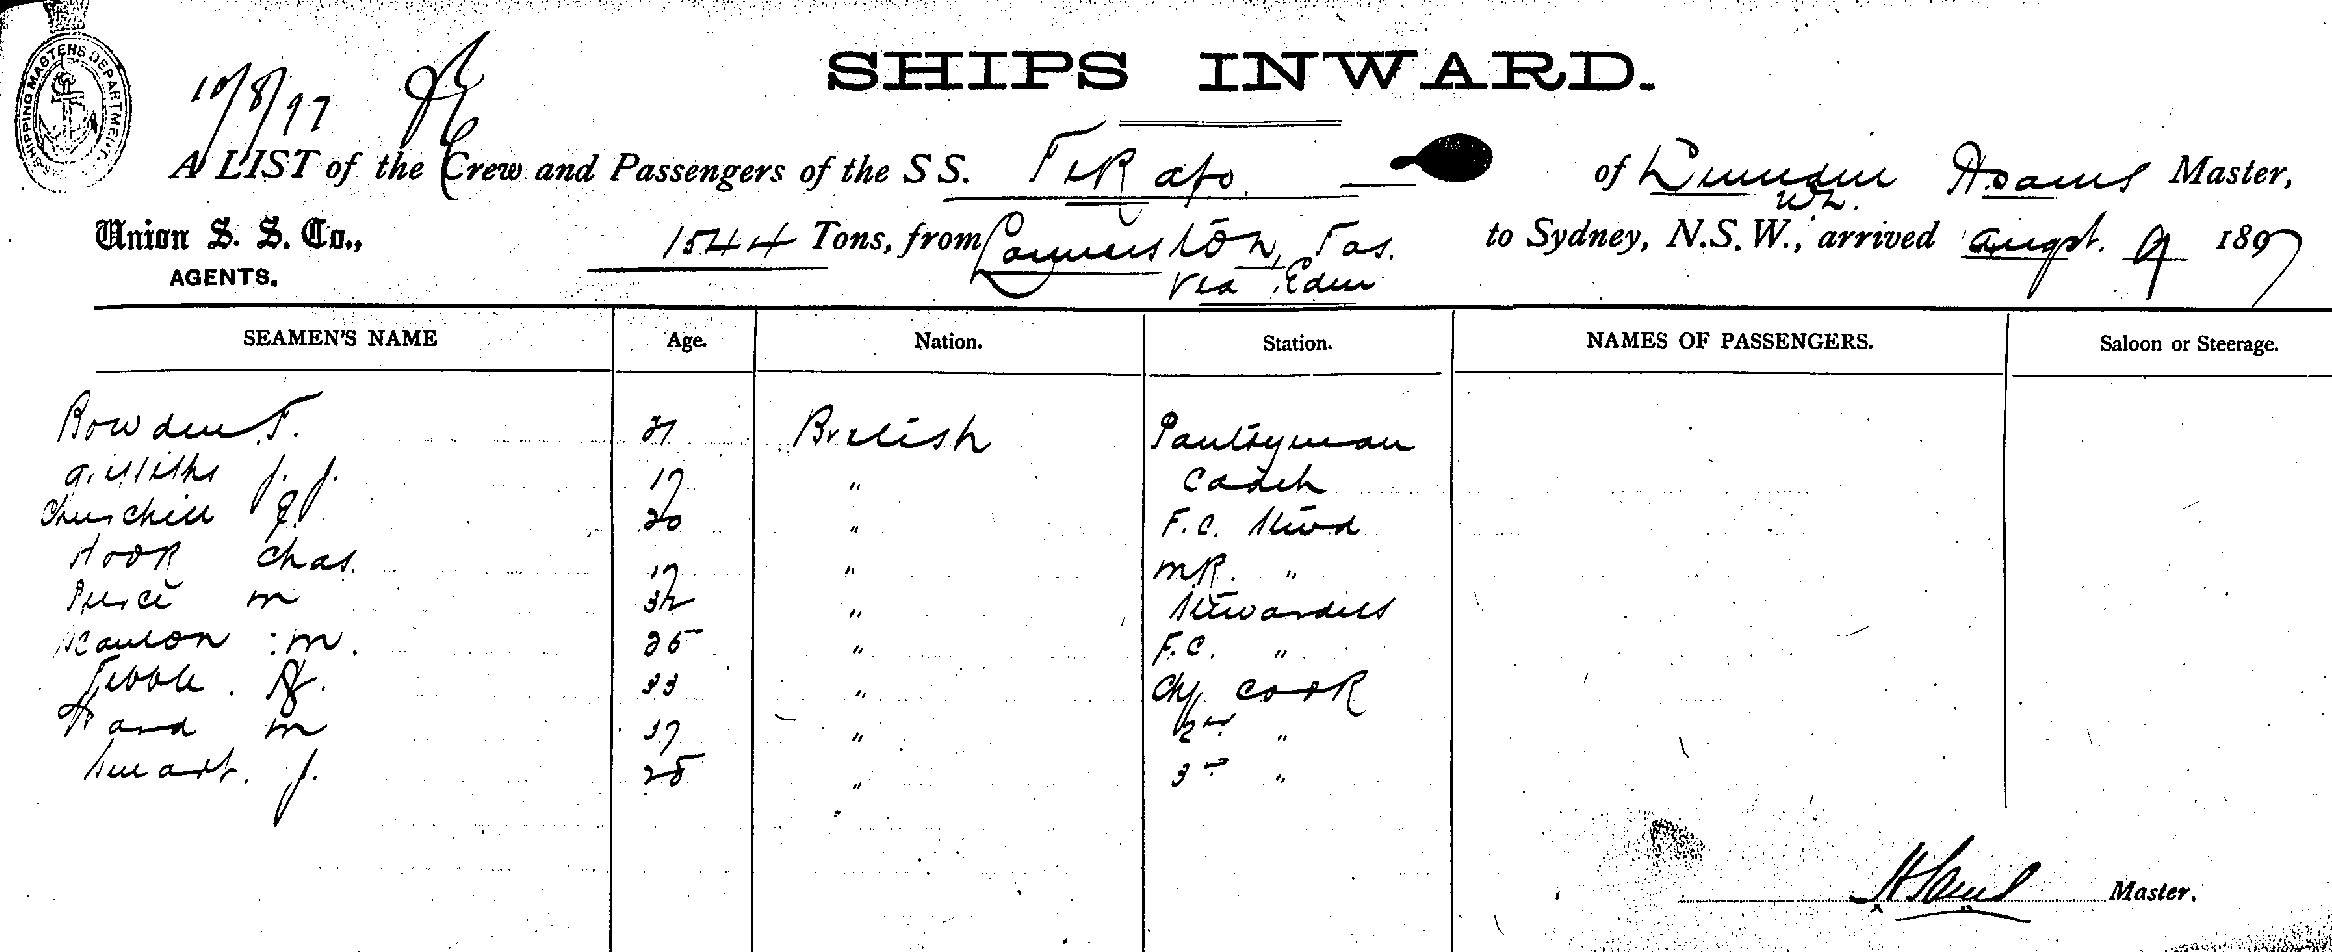 SHIPPING MASTERS DEPARTMENT
10/8/97
SHIPS INWARD.
A LIST of the Crew and Passengers of the S S. Tekapo of Dunedin Adams Master,
Union S. S. Co., 1544 Tons, from Launceston, Tas. to Sydney, N.S.W., arrived Augst. 9 1897
AGENTS. via Eden
SEAMEN'S NAME Age. Nation. Station. NAMES OF PASSENGERS. Saloon or Steerage.
Bowden T. 21 British Pantryman
Griffiths J. J. 19 "
Churchill 20 " F.C. Stewd
Hook Chas. 19 " M.R. "
Pierce M 32 " Stewardess
Scanlon M. 25 " F.C. "
Tebble. 33 " Chf. Cook
Hand M 37 " 2nd "
Smart. J. 28 " 3rd "
Master.